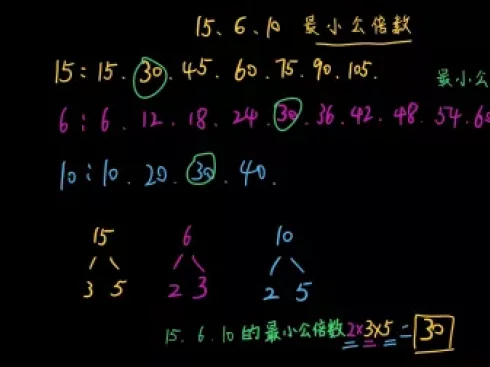 15、6、10 最小公倍数
15:15.30.45.60.75.90.105.
最小公
6:6.12.18.24.30.36.42.48.54.6
10:10.20.30.40.
15 6 10
3 5 2 3 2 5
15.6.10的最小公倍数2×3×5=30